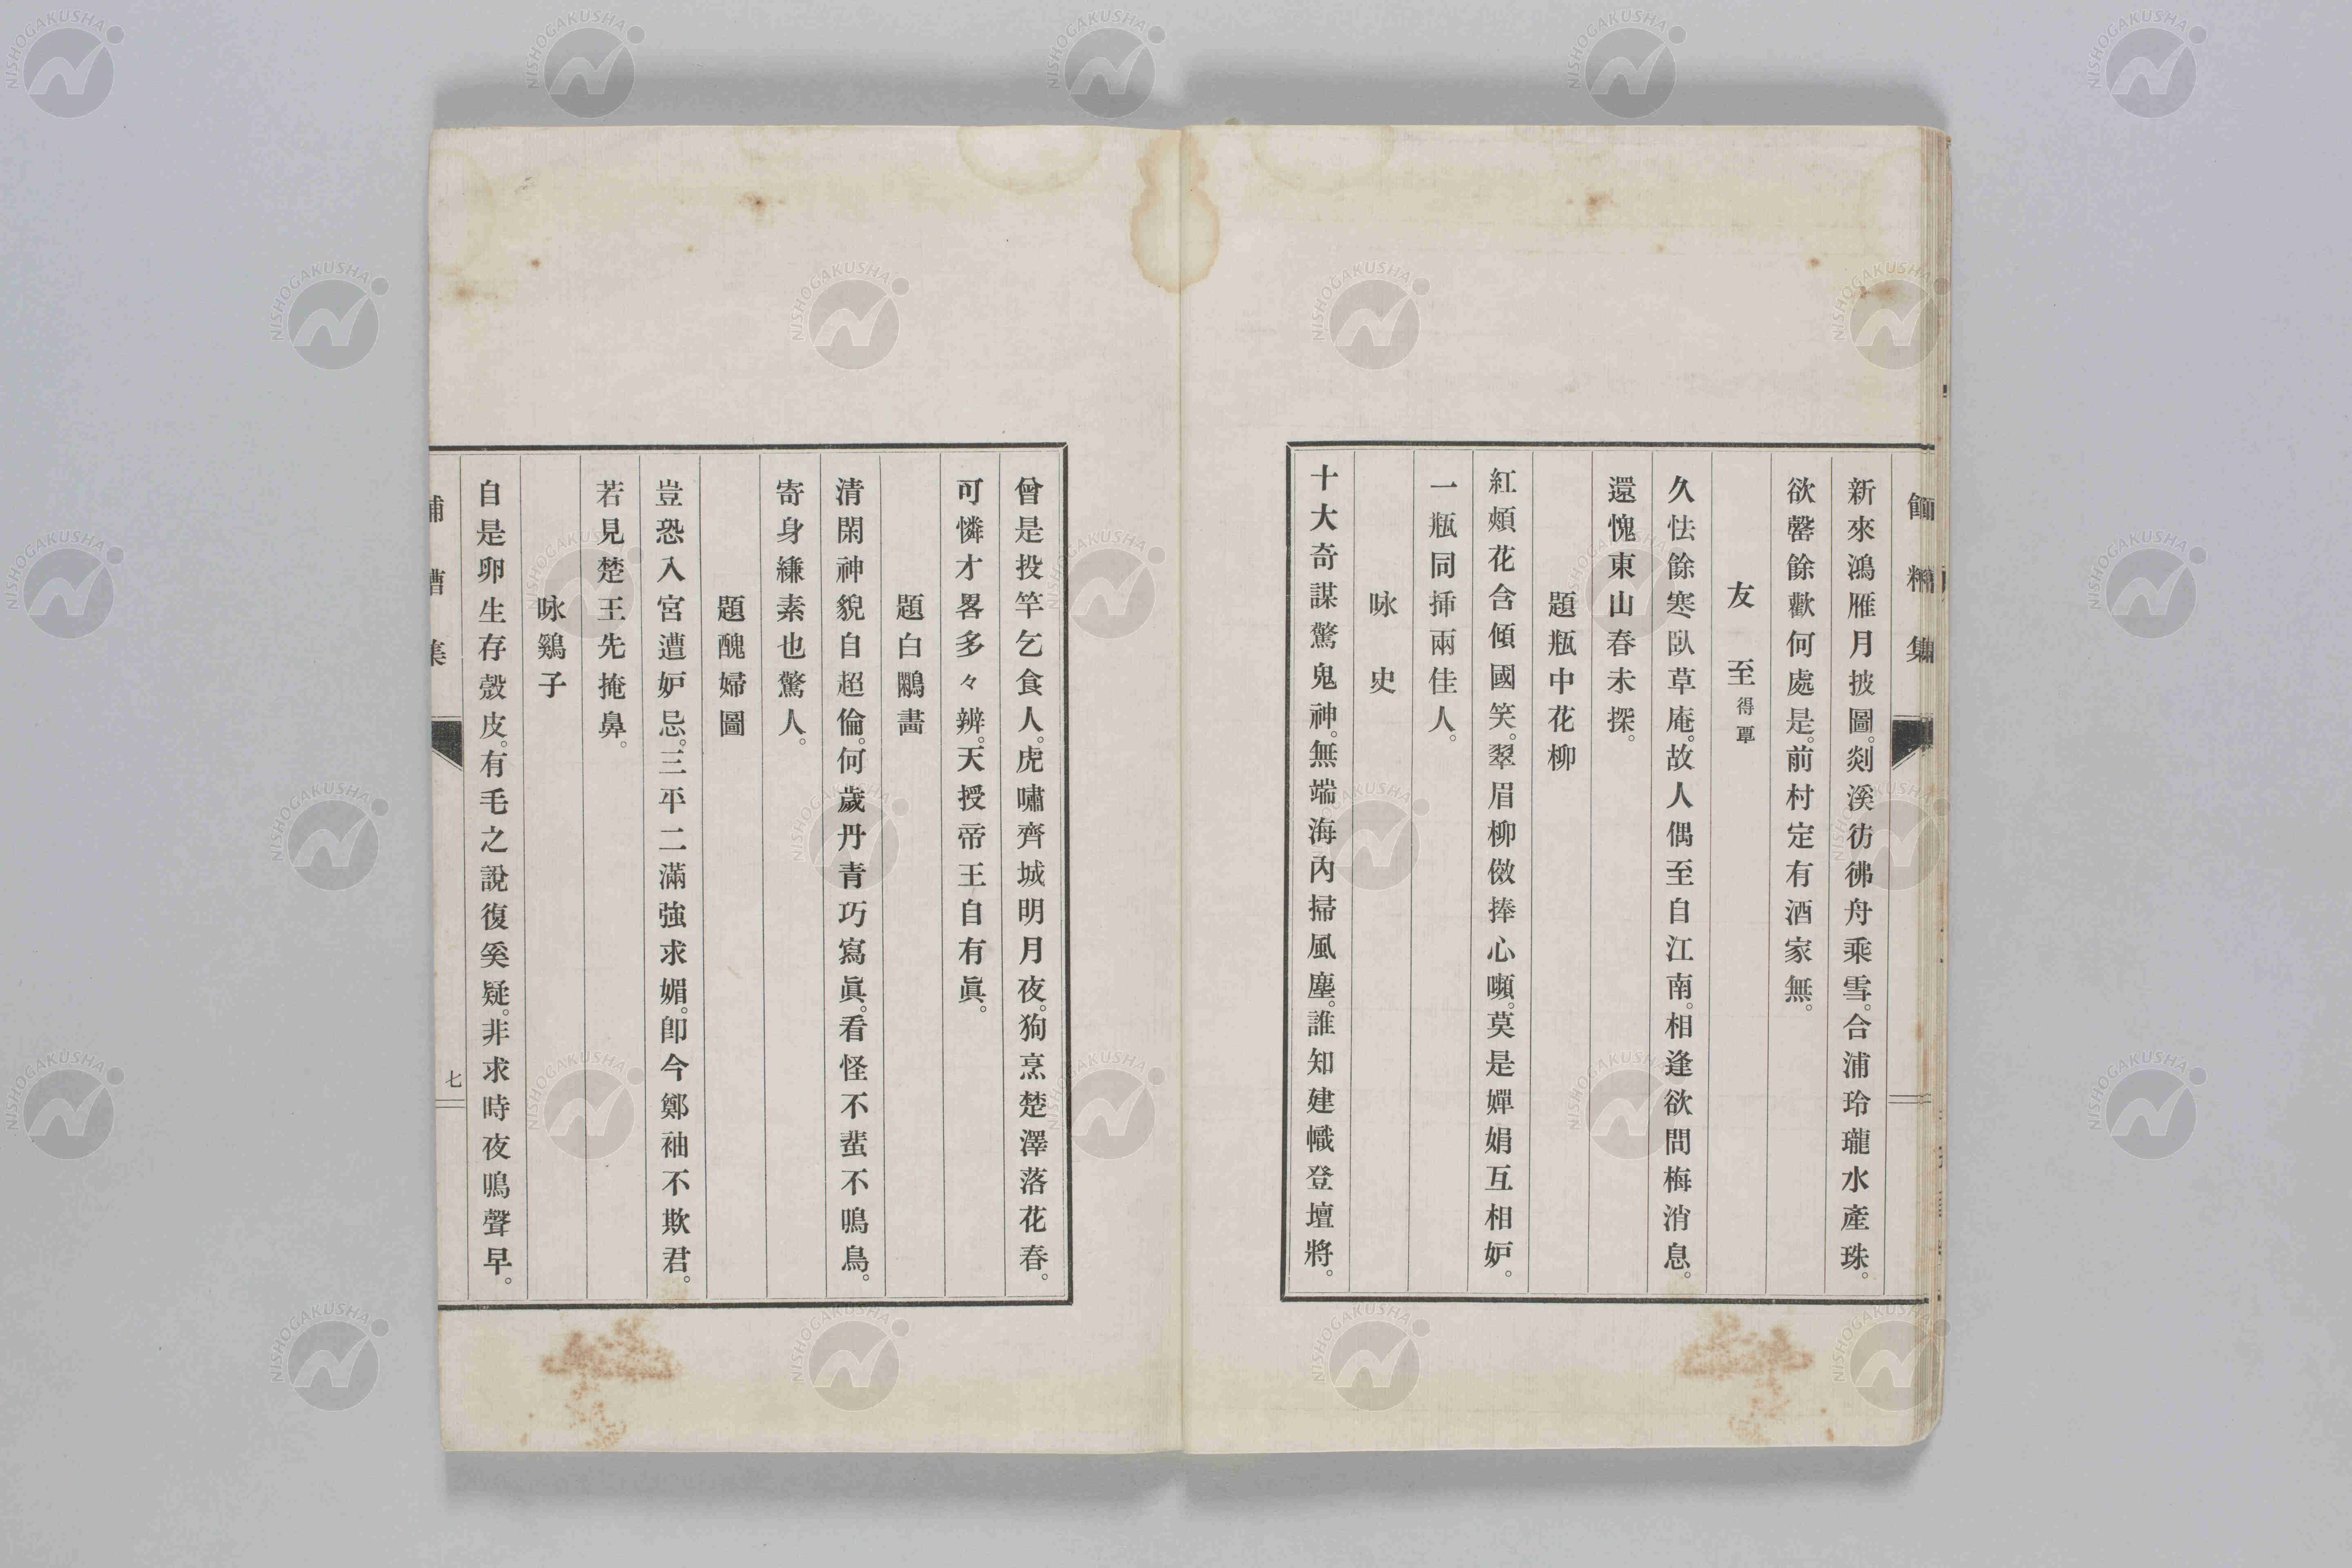 新來鴻雁月披圖。剡溪彷彿舟乘雪。合浦玲瓏水產珠。
欲罄餘歡何處是。前村定有酒家無。
友至 得覃
久怯餘寒臥草庵。故人偶至自江南。相逢欲問梅消息。
還愧東山春未探。
題瓶中花柳
紅頰花含傾國笑。翠眉柳倣捧心嚬。莫是嬋娟互相妒。
一瓶同揷兩佳人。
咏史
十大奇謀驚鬼神。無端海內掃風塵。誰知建幟登壇將。
曾是投竿乞食人。虎嘯齊城明月夜。狗烹楚澤落花春。
可憐才畧多々辨。天授帝王自有眞。
題白鷴畵
清閑神貌自超倫。何歲丹青巧寫眞。看怪不蜚不鳴鳥。
寄身縑素也驚人。
題醜婦圖
豈恐入宮遭妒忌。三平二滿強求媚。卽今鄭袖不欺君。
若見楚王先掩鼻。
咏鷄子
自是卵生存殼皮。有毛之說復奚疑。非求時夜鳴聲早。
集
七
NISHOGAKUSHA